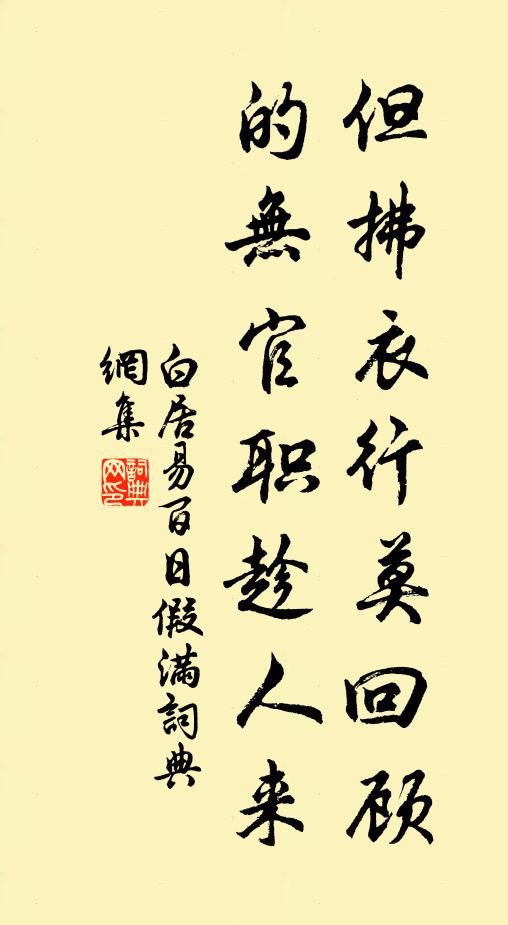 但拂衣行莫回顾
的無官职趁人来
白居易百日假满詞典
網集
詞典网印